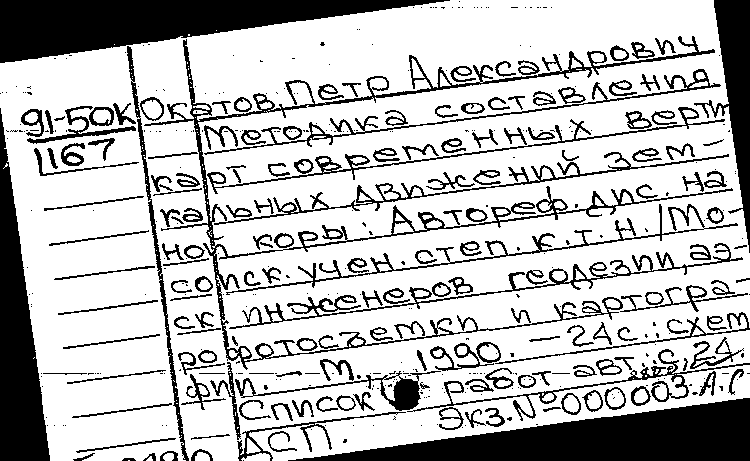 91-50К Окатов, Петр Александрович
1167 Методика составления
карт современных верти
кальных движений зем-
ной коры: Автореф. дис. на
соиск. учен. степ. к.т.н. /Мо-
ск инженеров геодезии, аэ-
рофотосъемки и картогра-
фии. - М., 1990. - 24с.: схем
Список работ авт.: с. 24.
ДСП. Экз.№ 000003. А.Г